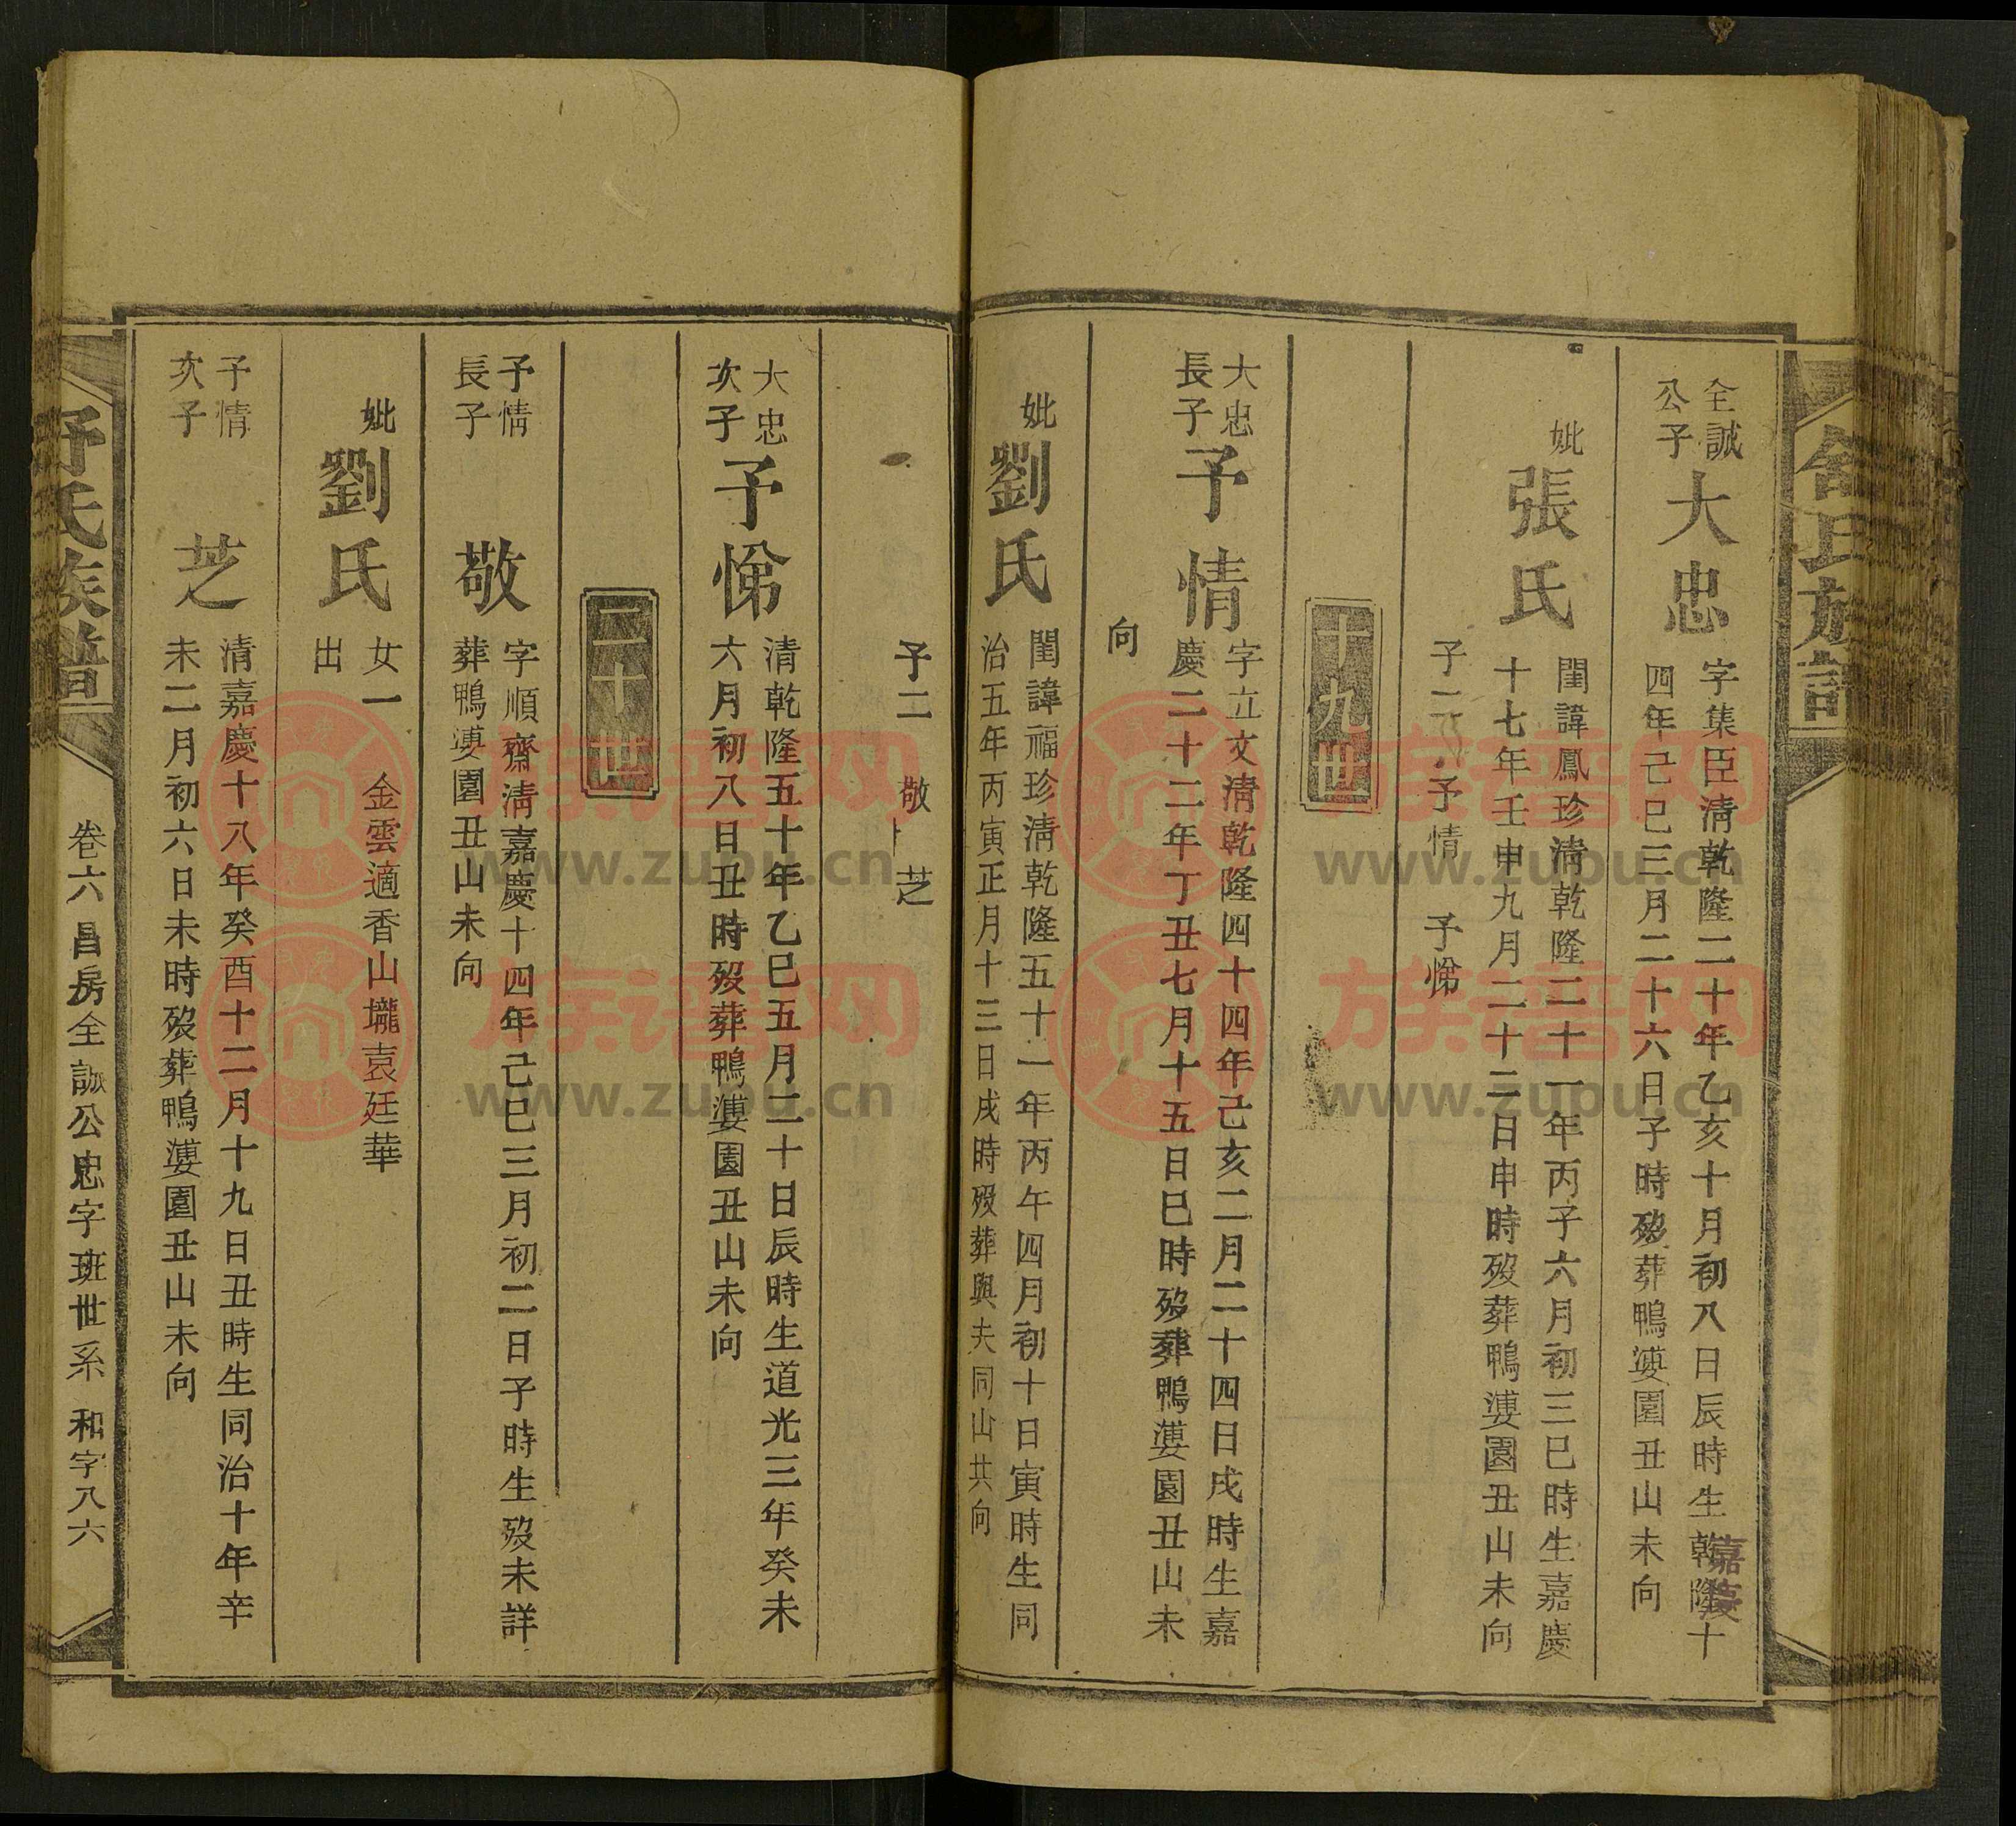 全誠
公子
大忠
字集臣清乾隆二十年乙亥十月初八日辰時生乾隆十
嘉慶
四年己巳三月二十六日子時歿葬鴨漊園丑山未向
妣
張氏
閨諱鳳珍清乾隆二十一年丙子六月初三巳時生嘉慶
十七年壬申九月二十二日申時歿葬鴨漊園丑山未向
子二 予情 予悌
十九世
大忠
長子
予情
字立文清乾隆四十四年己亥二月二十四日戌時生嘉
慶二十二年丁丑七月十五日巳時歿葬鴨漊園丑山未
向
妣
劉氏
閨諱福珍清乾隆五十一年丙午四月初十日寅時生同
治五年丙寅正月十三日戌時歿葬與夫同山共向
子二 敬 芝
大忠
次子
予悌
清乾隆五十年乙巳五月二十日辰時生道光三年癸未
六月初八日丑時歿葬鴨漊園丑山未向
二十世
予情
長子
敬
字順齋清嘉慶十四年己巳三月初二日子時生歿未詳
葬鴨漊園丑山未向
妣
劉氏
女一 金雲適香山壠袁廷華
出
予情
次子
芝
清嘉慶十八年癸酉十二月十九日丑時生同治十年辛
未二月初六日未時歿葬鴨漊園丑山未向
舒氏族譜
卷六 昌房全誠公忠字班世系 和字八六
族谱网
www.zupu.cn
族谱网
www.zupu.cn
族谱网
www.zupu.cn
族谱网
www.zupu.cn